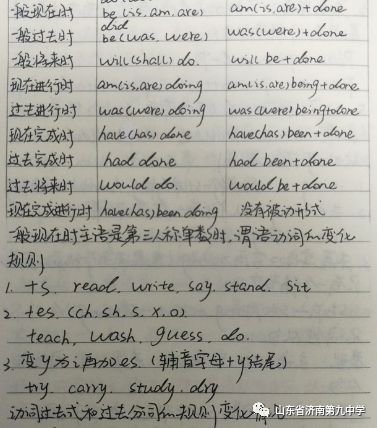 一般现在时 be (is. am. are) am(is. are)+done
did
一般过去时 be(was. were) was(were)+done
一般将来时 will(shall) do. will be+done
现在进行时 am(is. are) doing am(is. are) being+done
过去进行时 was(were) doing was(were) being+done
现在完成时 have(has) done have(has) been+done
过去完成时 had done had been+done
过去将来时 would do. would be+done
现在完成进行时 have(has) been doing 没有被动形式
一般现在时主语是第三人称单数时,谓语动词的变化
规则
1. +s. read. write. say. stand. sit
2. +es. (ch. sh. s. x. o).
teach. wash. guess. do.
3. 变y为i再加es. (辅音字母+y结尾)
try. carry. study. dry
动词过去式和过去分词的规则变化
山东省济南第九中学